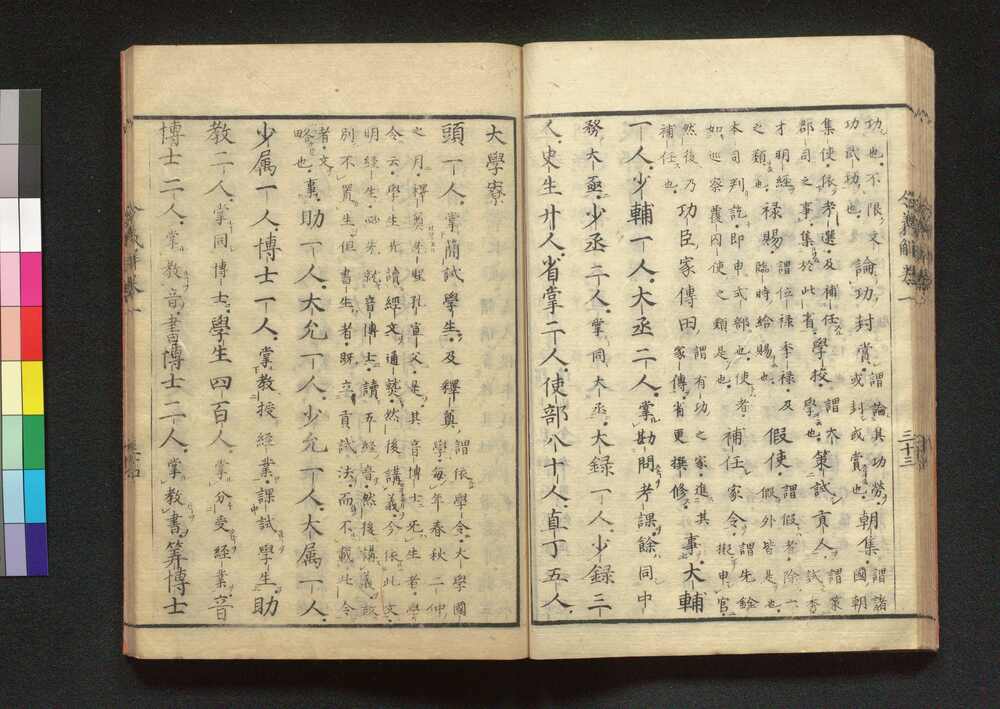 功也。不限文
功武功也。論功封賞。謂論其功勞。
或封或賞也。朝集謂諸
國朝
集使依考選及補任
郡司之事。集於此省。學校。謂大
學也。策試貢人。謂策
試秀
才明經
之類也。祿賜。謂位祿季祿及
臨時給賜也。假使謂假者。除一
假外皆是也。
本司判訖。即申式部也。使者
如巡察覆囚使之類是也。補任家令。謂先銓
擬申官。
然後乃
補任也。功臣家傳田謂有功之家。進其
家傳。省更撰修。事。大輔
一人。少輔一人。大丞二人。掌勘問考課。餘同中
務大丞。少丞二人。掌同大丞。大録一人。少録三
人。史生廿人。省掌二人。使部八十人。直丁五人。
三十三
大學寮
頭一人。掌簡試學生。及釋奠。謂依學令。大學國
學。每年春秋二仲
之月。釋奠先聖孔宣父是。其音博士。無生者。學
令云。學生先讀經文。通熟。然後講義。今依此文。
明經生。必先就音博士。讀五經音。然後講義。故
別不置生。但書生者。既立貢試法。而不載此令
者。文
略也。事。助一人。大允一人。少允一人。大属一人。
少属一人。博士一人。掌教授經業。課試學生。助
教二人。掌同博士。學生四百人。掌分受經業。音
博士二人。掌教音。書博士二人。掌教書。筭博士